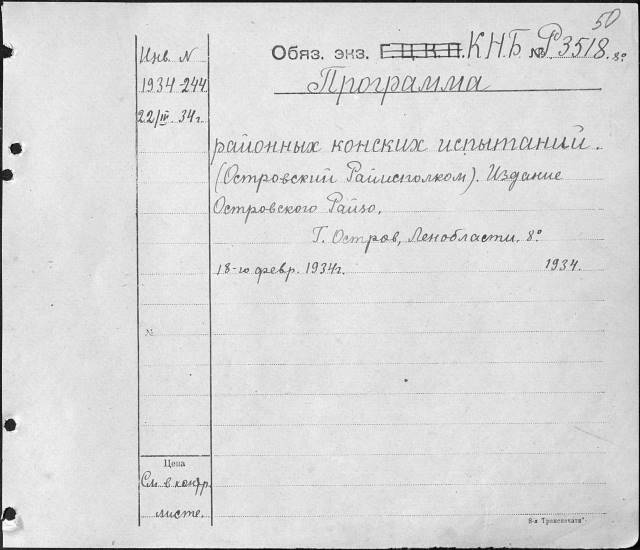 50
Обяз. экз. Г.Ц.К.П. КНБ № Р3518. 8°
Инв. N
1934 244
22/III 34 г.
Программа
районных конских испытаний.
(Островский Райисполком). Издание
Островского Райзо.
Г. Остров, Ленобласти. 8°.
18-го февр. 1934 г. 1934.
№
Цена
См. в контр.
листе.
8-я Транспечати